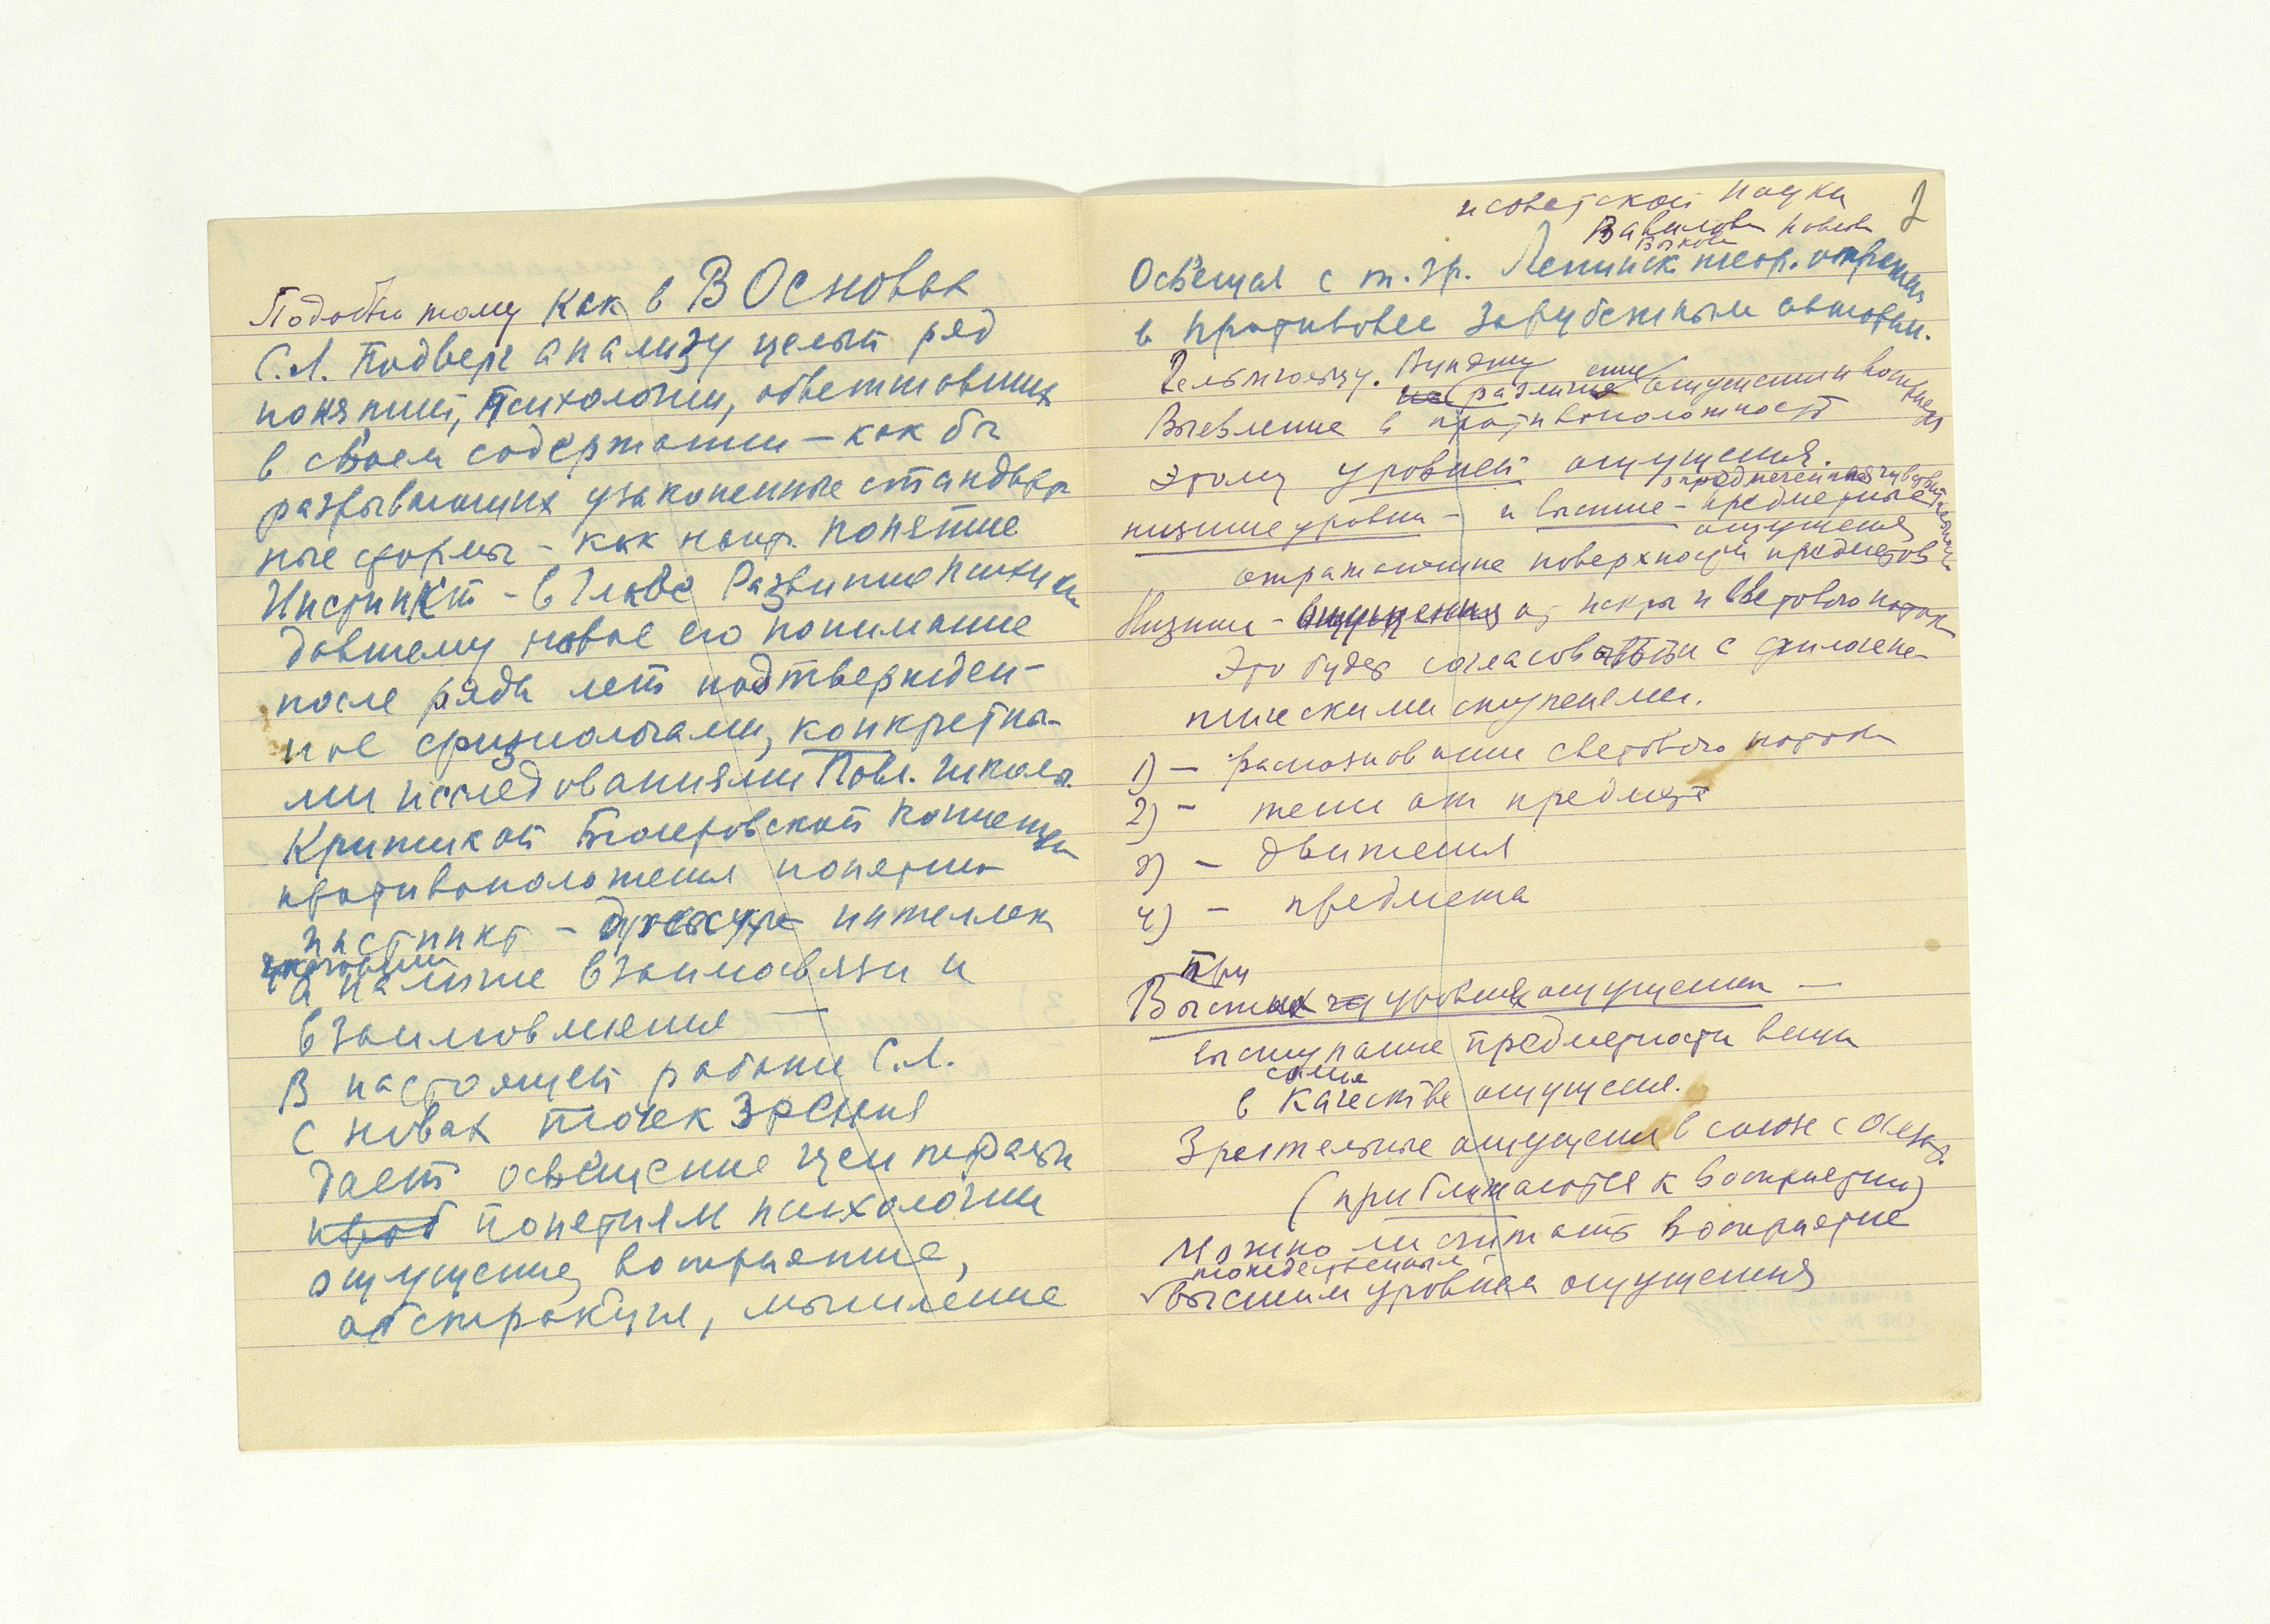 Подобно тому как в В Основах
С.Л. подверг анализу целый ряд
понятий, психологии, обветшавших
в своем содержании – как бы
разрывающих узаконенные стандарт
ные формы – как напр. понятие
Инстинкт – в Главе Развитие психики
давшему новое его понимание
после ряда лет подтвержден-
ное физиологами, конкретны-
ми исследованиями Павл. школы.
Критикой Бюлеровской концепции
противоположения понятия
инстинкт – интеллек
а наличие взаимосвязи и
взаимовлияния —
В настоящей работе С.Л.
с новых точек зрения
дает освещение централь
понятиям психологии
ощущение, восприятие,
абстракция, мышление
2
и советской науки
Вавилова Павлова
Быкова
Освещая с т. зр. Ленинск теор. отражения
в противовес зарубежным авторам.
Гельмгольцу. Вундту
различие ощущения и восприятия
Выявление в противоположность
этому уровней ощущения.
опредмеченная чувствительность
низшие уровни – и высшие – предметные
ощущения
отражающие поверхности предметов
Низшие – ощущения от искры и светового потока
Это будет согласоваться с филогене-
тическими ступенями.
1) – распознавание светового потока
2) – тени от предмета
3) – движения
4) – предмета
При
Высших уровнях ощущения —
выступание предметности вещи
в качестве ощущения.
Зрительные ощущения в союзе с осяз.
(приближаются к восприятию)
Можно ли считать восприятие
тождественным
высшим уровням ощущения